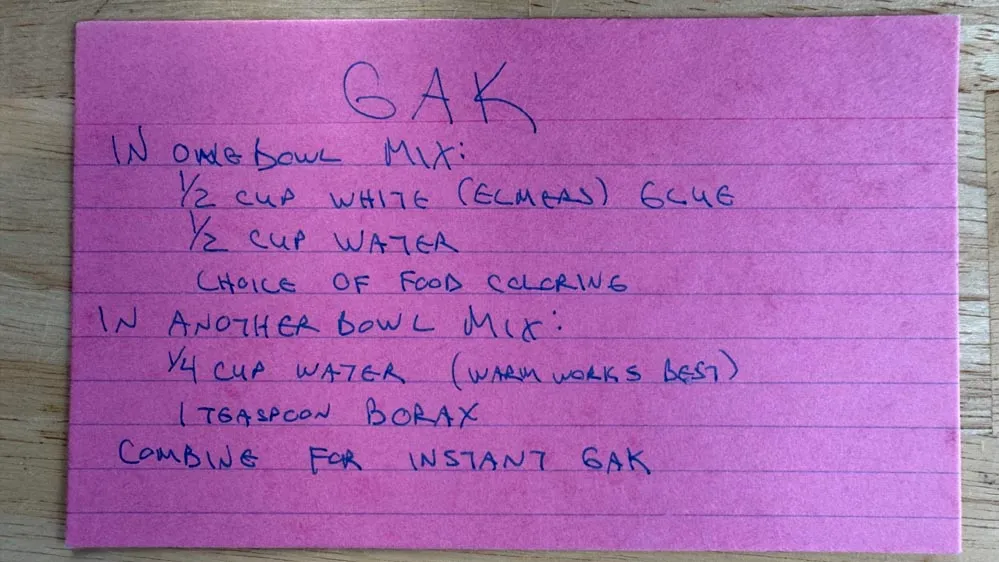 GAK
IN ONE BOWL MIX:
1/2 CUP WHITE (ELMERS) GLUE
1/2 CUP WATER
CHOICE OF FOOD COLORING
IN ANOTHER BOWL MIX:
1/4 CUP WATER (WARM WORKS BEST)
1 TEASPOON BORAX
COMBINE FOR INSTANT GAK